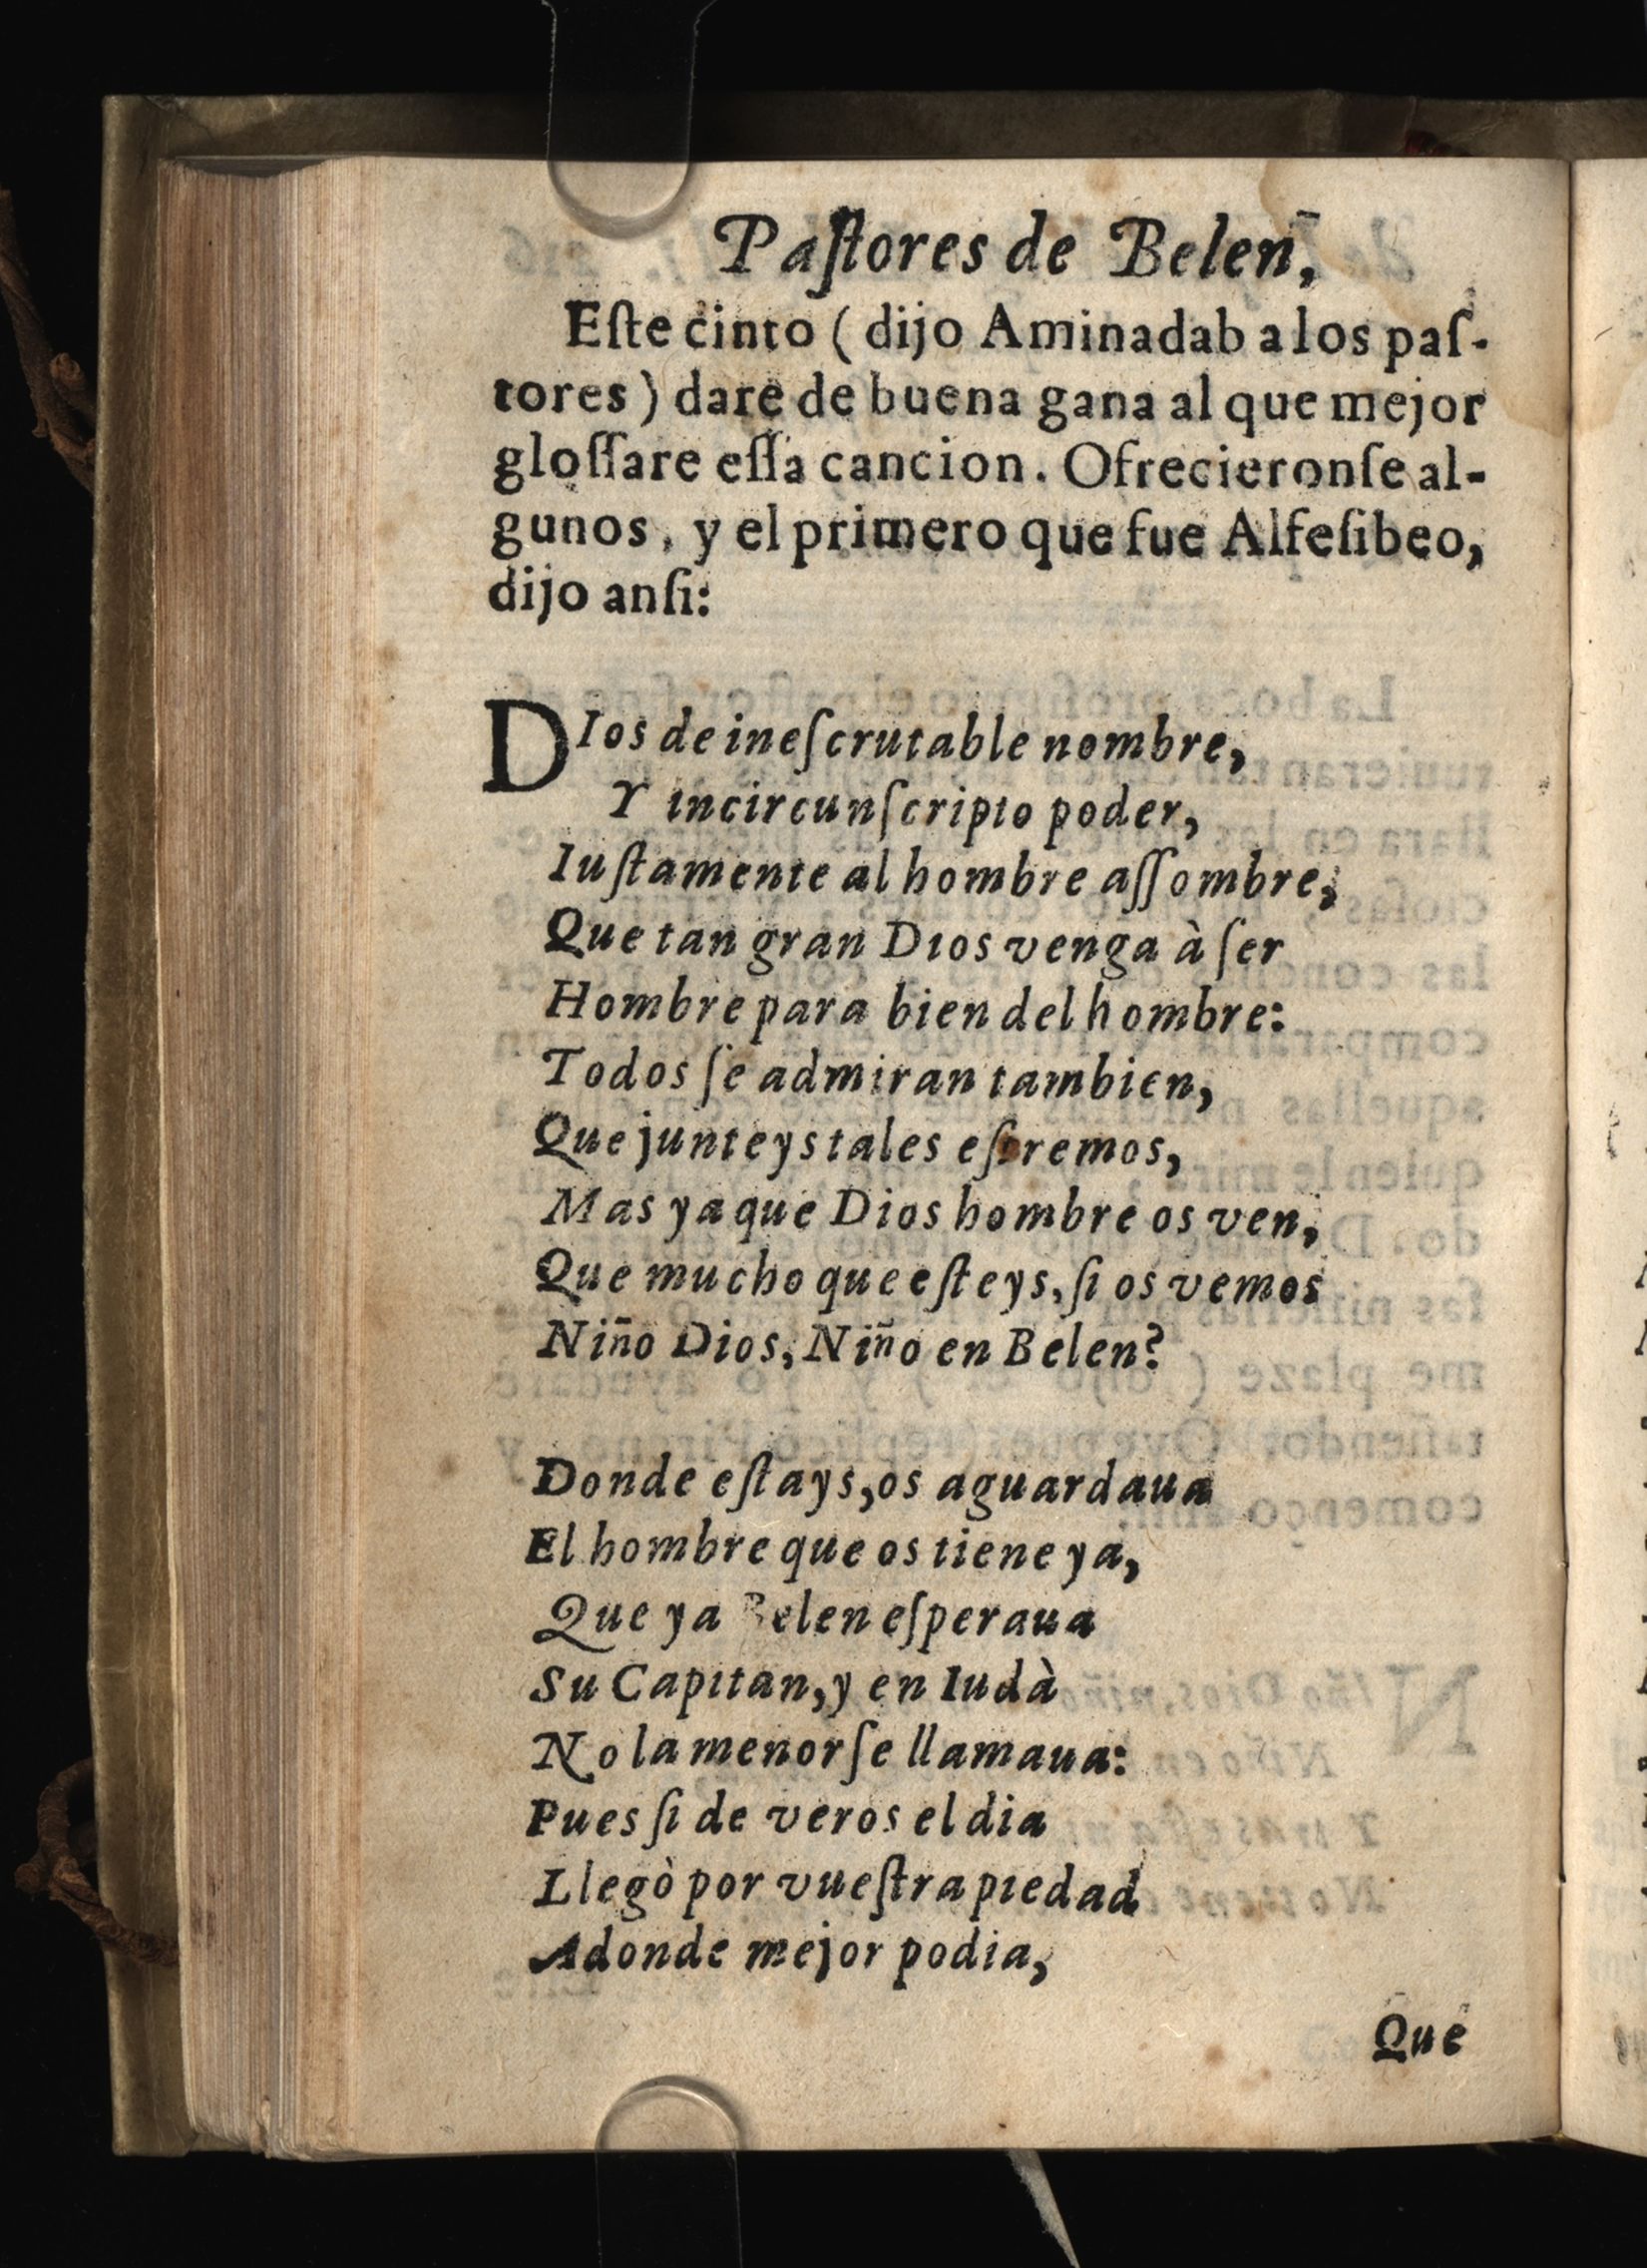 Paſtores de Belen,
Eſte cinto ( dijo Aminadab a los paſ-
tores ) dare de buena gana al que mejor
gloſſare eſſa cancion. Ofrecieronſe al-
gunos, y el primero que fue Alfeſibeo,
dijo anſi:
DIos de ineſcrutable nombre,
Y incircunſcripto poder,
Iuſtamente al hombre aſſombre,
Que tan gran Dios venga à ſer
Hombre para bien del hombre:
Todos ſe admiran tambien,
Que junteys tales eſtremos,
Mas ya que Dios hombre os ven,
Que mucho que eſteys, ſi os vemos
Niño Dios, Niño en Belen?
Donde eſtays, os aguardaua
El hombre que os tiene ya,
Que ya Belen eſperaua
Su Capitan, y en Iudà
No la menor ſe llamaua:
Pues ſi de veros el dia
Llegò por vueſtra piedad
Adonde mejor podia,
Que